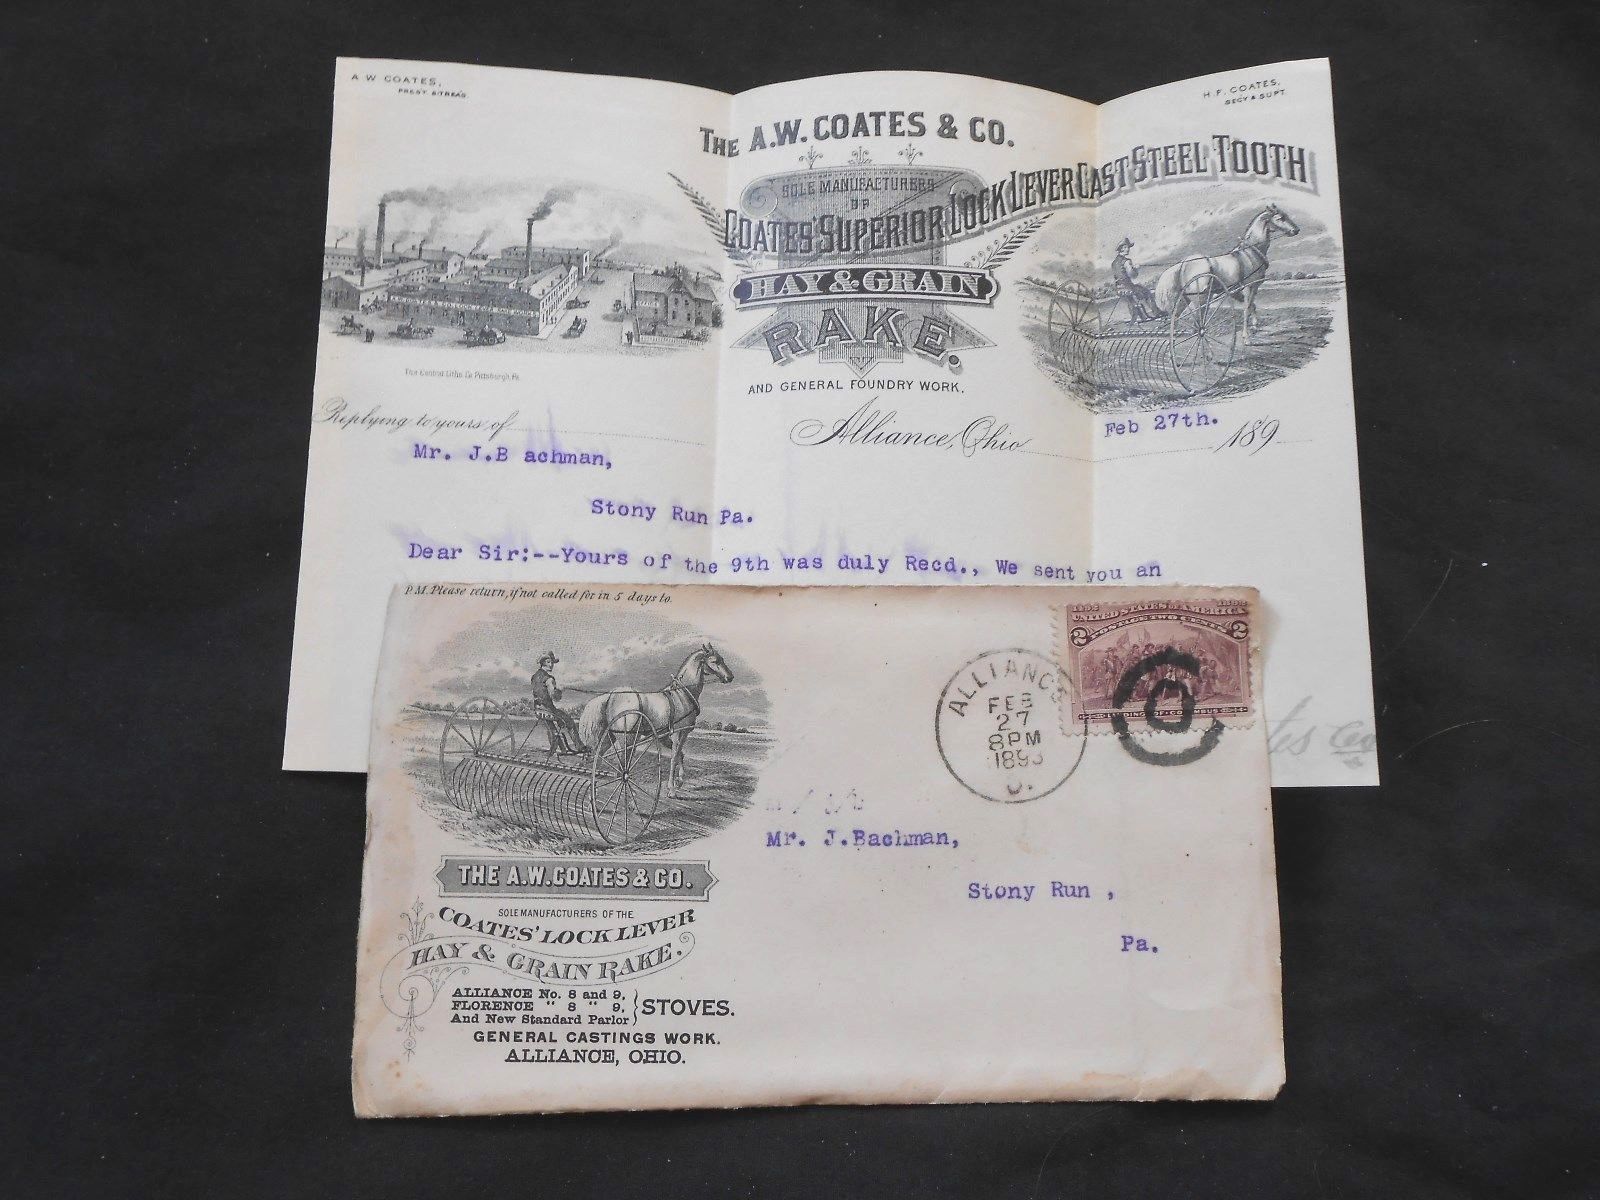 A W COATES,
PREST. & TREAS.
H. F. COATES,
SECY & SUPT.
THE A.W. COATES & CO.
SOLE MANUFACTURERS
OF
COATES' SUPERIOR LOCK LEVER CAST STEEL TOOTH
HAY & GRAIN
RAKE.
AND GENERAL FOUNDRY WORK.
A.W. COATES & CO. LOCK LEVER RAKE WORKS
The Central Litho. Co. Pittsburgh, Pa.
Replying to yours of
Alliance, Ohio Feb 27th. 189
Mr. J.B achman,
Stony Run Pa.
Dear Sir:--Yours of the 9th was duly Recd., We sent you an
P.M. Please return, if not called for in 5 days to.
THE A.W. COATES & CO.
SOLE MANUFACTURERS OF THE
COATES' LOCK LEVER
HAY & GRAIN RAKE.
ALLIANCE No. 8 and 9,
FLORENCE " 8 " 9,
And New Standard Parlor
STOVES.
GENERAL CASTINGS WORK.
ALLIANCE, OHIO.
ALLIANCE
FEB
27
8PM
1893
O.
1492 1892
UNITED STATES OF AMERICA
2 POSTAGE TWO CENTS 2
LANDING OF COLUMBUS
Mr. J.Bachman,
Stony Run ,
Pa.